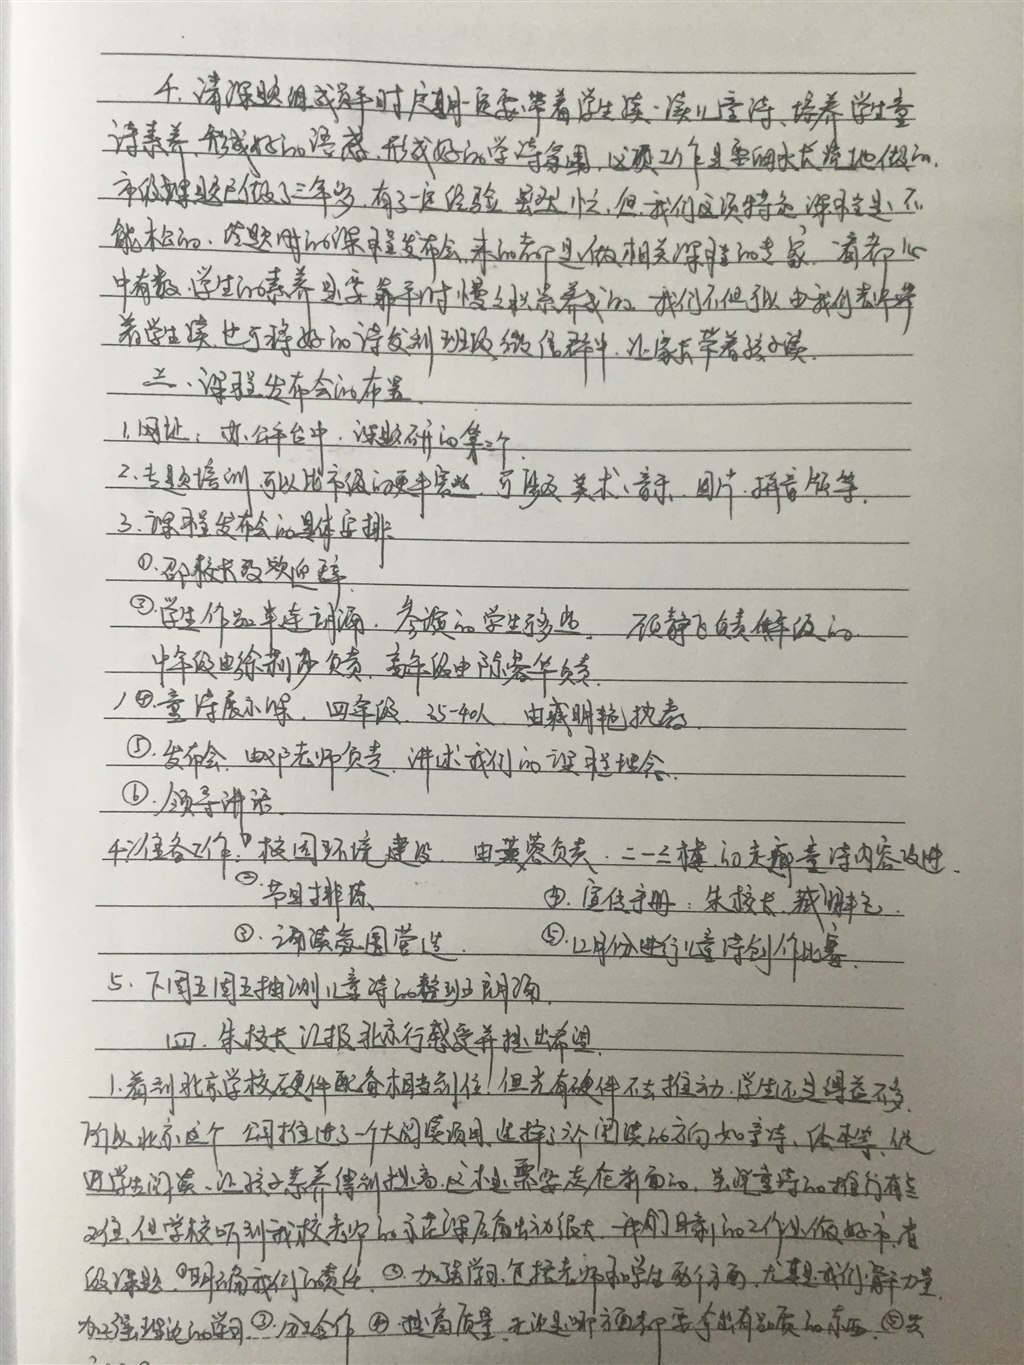 4. 请课题组成员平时定期一定要带着学生读一读儿童诗、培养学生童
诗素养、形成好的语感、形成好的学诗氛围，这项工作是要细水长流地做的.
市级课题已做了三年多，有了一定经验 虽然忙，但我们这项特色课程是不
能松的、结题时的课程发布会，来的都是做相关课程的专家、看都心
中有数，学生的素养是要靠平时慢慢积累养成的. 我们不但可以由我们老师带
着学生读，也可将好的诗发到班级微信群中，让家长带着孩子读.
三、课程发布会的布置.
1. 网址：办公平台中，课题研的第2个.
2. 专题培训 可以比市级的更丰富些，可涉及美术、音乐、图片、拼音版等.
3. 课程发布会的具体安排：
①. 邵校长致欢迎辞.
②. 学生作品串连朗诵、参演的学生多些. 顾静飞负责低年级的
中年级由徐莉莎负责，高年级由陈春华负责.
④. 童诗展示课、四年级、35-40人 由臧明艳执教.
⑤. 发布会，由邓老师负责，讲述我们的课程理念.
⑥. 领导讲话.
4. 准备工作：① 校园环境建设、由黄蓉负责、二一三楼的走廊童诗内容改进.
②. 节目排练 ④. 宣传手册：朱校长、臧明艳.
③. 诵读氛围营造. ⑤. 12月份进行儿童诗创作比赛.
5. 下周五周五抽测儿童诗的整班朗诵.
四. 朱校长汇报北京行感受并提出希望.
1. 看到北京学校硬件配备相当到位，但光有硬件不去推动，学生还是得益不多.
所以北京这个 公司推进了一个大阅读项目，选择了3个阅读的方向如童诗、绘本等、促
进学生阅读、让孩子素养得到提高，这也是要走在前面的，虽说童诗的推行有点
难，但学校听到我校老师的示范课后触动很大，我们目前的工作也做好市、省
级课题. ①明确我们的责任. ②. 加强学习，包括老师和学生两个方面，尤其是我们骨干力量.
加强理论的学习. ③. 分工合作 ④ 提高质量，无论是哪方面都要拿出有品质的东西. ⑤共